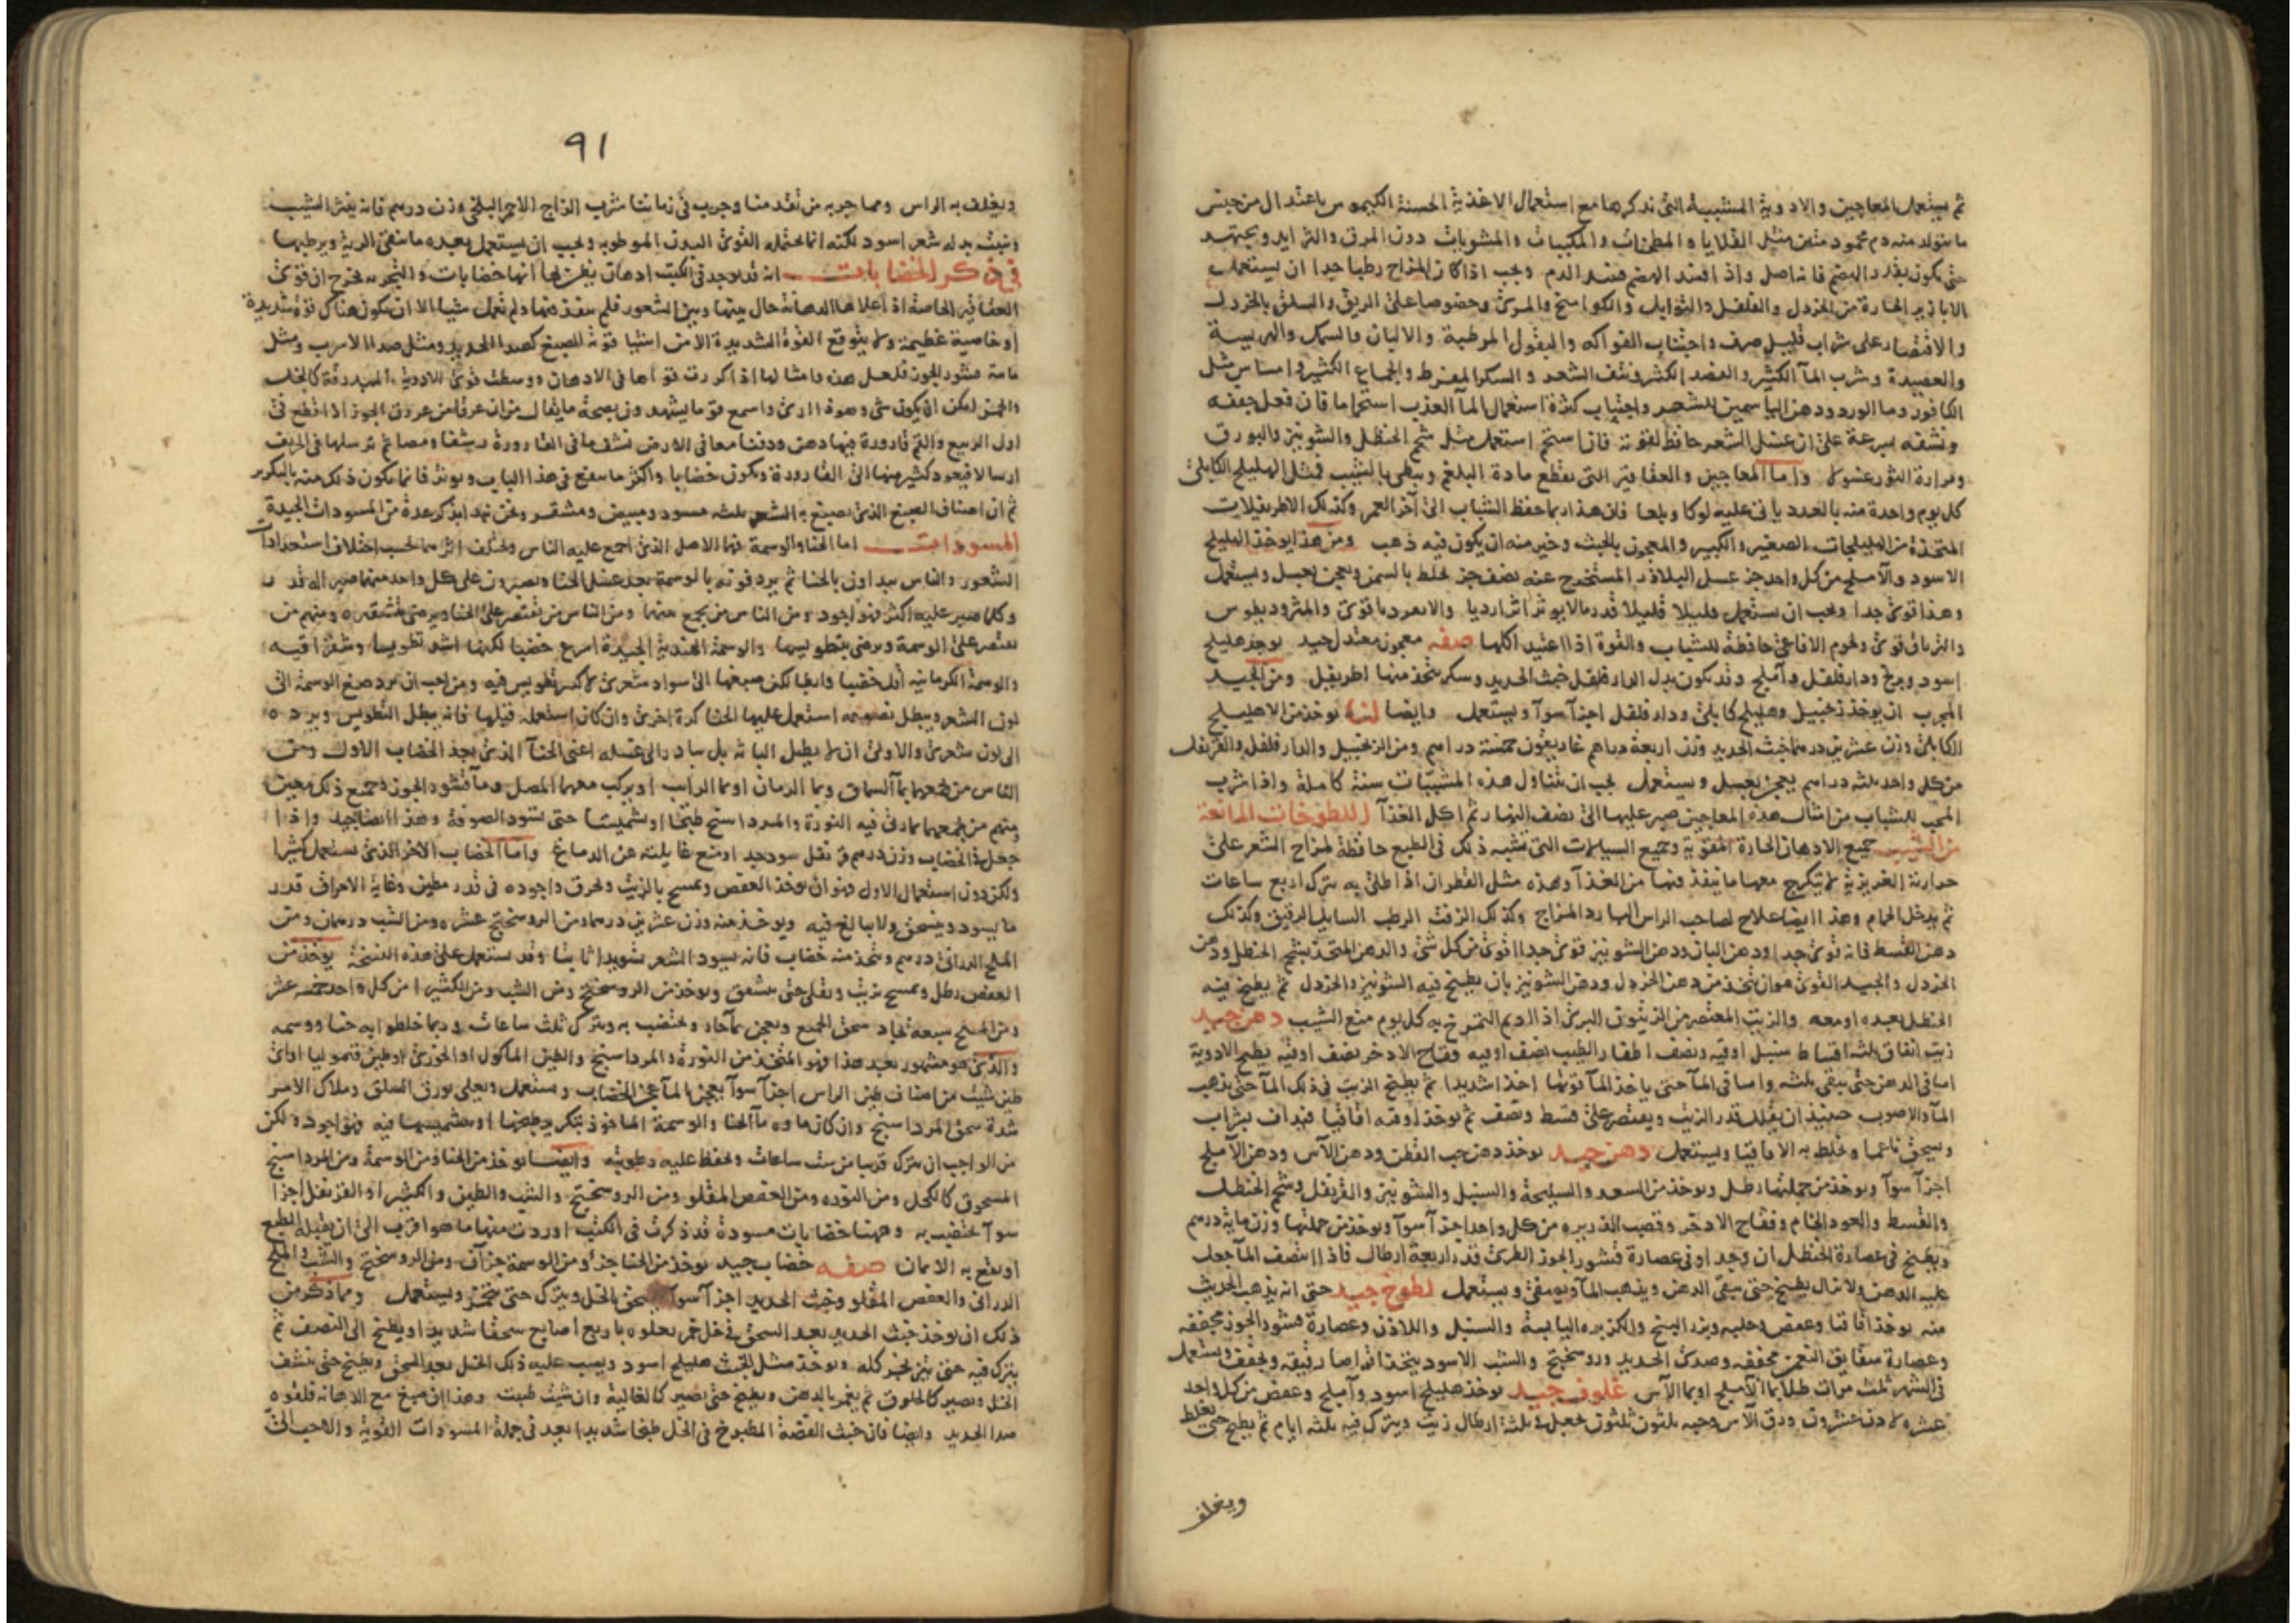 ثم يستعمل المعاجين والادوية المشببة التى نذكرها مع استعمال الاغذية الحسنة الكيموس باعتدال من جنس
ما يتولد منه دم محمود متين مثل القلايا والمطجنات والمكببات والمشويات دون المرق والثرايد ويجتهد
حتى يكون بقدر الهضم فانه اصل واذا فسد الهضم فسد الدم ويجب اذا كان المزاج رطبا جدا ان يستعمل
الابازير الحارة من الخردل والفلفل والتوابل والكوامخ والمرى وخصوصا على الريق والسلق بالخردل
والاقتصار على شراب قليل صرف واجتناب الفواكه والبقول المرطبة والالبان والسمك والهريسة
والعصيدة وشرب المآ الكثير والفصد الكثير ونتف الشعر والسكر المفرط والجماع الكثير وامساس مثل
الكافور وما الورد ودهن الياسمين للشعر واجتناب كثرة استعمال المآ العذب استحماما فان فعل جففه
ونشفه بسرعة على ان غسل الشعر حافظ لقوته فان استحم استعمل مثل شحم الحنظل والشونيز والبورق
ومرارة الثور غسولا واما المعاجين والعقاقير التى تقطع مادة البلغم وتبطى بالشيب فمثل الهليلج الكابلى
كل يوم واحدة منه بالعدد يأتى عليه لوكا وبلعا فان هذا ربما حفظ الشباب الى آخر العمر وكذلك الاطريفلات
المتخذة من الهليلجات الصغير والكبير والمعجون بالخبث وخير منه ان يكون فيه ذهب ومن هذا يوخذ الهليلج
الاسود والآملج من كل واحد جز عسل البلاذر المستخرج عنه نصف جز يخلط بالسمن ويعجن بعسل ويستعمل
وهذا قوى جدا ويجب ان يستعمل قليلا قليلا قدر ما لا يوثر اثرا رديا والانقرديا قوى والمثروديطوس
والترياق قوى ولحوم الافاعى حافظة للشباب والقوة اذا اعتيد اكلها صفة معجون معتدل جيد يوخذ هليلج
اسود وبرنج ودارفلفل وآملج وقد يكون بدل الدارفلفل خبث الحديد وسكر يتخذ منها اطريفل ومن الجيد
المجرب ان يوخذ زنجبيل وهليلج كابلى ودارفلفل اجزآ سوآ ويستعمل وايضا لنا يوخذ من الاهليلج
الكابلى وزن عشرين درهما خبث الحديد وزن اربعة دراهم غاريقون خمسة دراهم ومن الزنجبيل والدارفلفل والقرنفل
من كل واحد ثلثه دراهم يعجن بعسل ويستعمل يجب ان يتناول هذه المشببات سنة كاملة واذا شرب
المحب للشباب من امثال هذه المعاجين صبر عليها الى نصف النهار ثم اكل الغذآ اللطوخات المانعة
من الشيب جميع الادهان الحارة المقوية وجميع السيالات التى تشبه ذلك فى الطبع حافظة لمزاج الشعر على
حرارته الغريزية لا تتكرج معها ما ينفذ فيها من الغذآ وهذه مثل القطران اذا طلى به يترك اربع ساعات
ثم يدخل الحمام وهذا ايضا علاج لصاحب الراس البارد المزاج وكذلك الزفت الرطب السايل الرقيق وكذلك
دهن القسط فانه قوى جدا ودهن البان ودهن الشونيز قوى جدا اقوى من كل شى والدهن المتخذ بشحم الحنظل ودهن
الخردل والجيد القوى هو ان يتخذ من دهن الخردل ودهن الشونيز بان يطبخ فيه الشونيز والخردل ثم يطبخ فيه
الحنظل بعده او معه والزيت المعتصر من الزيتون البرى اذا اديم التمرخ به كل يوم منع الشيب دهن جيد
زيت انفاق ثلثه اقساط سنبل اوقيه ونصف اظفار الطيب نصف اوقيه فقاح الاذخر نصف اوقيه يطبخ الادوية
اما فى الدهن حتى يبقى ثلثه واما فى المآ حتى ياخذ المآ قوتها اخذا شديدا ثم يطبخ الزيت فى ذلك المآ حتى يذهب
المآ والاصوب حينيذ ان يقلل قدر الزيت ويقتصر على قسط ونصف ثم يوخذ اوقيه اقاقيا فيداف بشراب
ويسحق ناعما ويخلط به الاقاقيا ويستعمل دهن جيد يوخذ دهن حب القطن ودهن الآس ودهن الآملج
اجزآ سوآ ويوخذ من جملتها رطل ويوخذ من السعد والسليخة والسنبل والشونيز والقرنفل وشحم الحنظل
والقسط والعود الخام وفقاح الاذخر وقصب الذريره من كل واحد اجزآ سوآ ويوخذ من جملتها وزن مايه درهم
ويطبخ فى عصارة الحنظل ان وجد او فى عصارة قشور الجوز الطرى قدر اربعة ارطال فاذا انتصف المآ جعل
عليه الدهن ولا يزال يطبخ حتى يبقى الدهن ويذهب المآ ويصفى ويستعمل لطوخ جيد حتى انه يذهب الحديث
منه يوخذ اقاقيا وعفص وحلبه وبزر البنج والكزبره اليابسة والسنبل واللاذن وعصارة قشور الجوز مجففه
وعصارة شقايق النعمن مجففه وصدى الحديد وروسختج والشب الاسود يتخذ اقراصا رقيقه ويجفف ويستعمل
فى الشهر ثلث مرات طلا بما الآملج او بما الآس غلوف جيد يوخذ هليلج اسود وآملج وعفص من كل واحد
عشره لاذن عشرون ورق الآس وحبه ثلثون ثلثون يجعل فى ثلثة ارطال زيت ويترك فيه ثلثه ايام ثم يطبخ حتى يغلظ
ويغلف
٩١
ويغلف به الراس ومما جربه من تقدمنا وجرب فى زماننا شرب الزاج الاحمر البلخى وزن درهم فانه ينثر الشيب
وينبت بدله شعر اسود لكنه انما يحتمله القوى البدن المرطوبه ويجب ان يستعمل بعده ما ينقى الرية ويرطبها
فى ذكر الخضابات انه قد يوجد فى الكتب ادهان يظن بها انها خضابات والتجربه تخرج ان قوى
العقاقير الخاصة اذا علاها الدهانة حال بينها وبين الشعور فلم ينفذ فيها ولم تعمل شيا الا ان يكون هناك قوة شديدة
او خاصية عظيمة ولا يتوقع القوة الشديدة الا من اشيا قوية للصبغ كصدا الحديد ومثل صدا الاسرب ومثل
مآية قشور الجوز فلعل هذه وامثالها اذا كررت قواها فى الادهان ووسطت قوى الادوية المبدرقة كالخل
والخمر امكن ان يكون شى وهوذا ارى واسمع قوما يشهدون بصحة ما يقال من ان عرقا من عروق الجوز اذا قطع فى
اول الربيع والقم قارورة فيها دهن ودفنا معا فى الارض نشف ما فى القارورة نشفا ومصا ثم ترسلها فى الخريف
ارسالا فيعود كثير منها الى القارورة ويكون خضابا واكثر ما ينفع فى هذا الباب ويوثر فانما يكون ذلك منه بالتكرير
ثم ان اصناف الصبغ الذى يصبغ به الشعر ثلثه مسود ومبيض ومشقر ونحن نريد ان نذكر عدة من المسودات الجيدة
المسودات اما الحنا والوسمة فهما الاصل الذى اجمع عليه الناس ويختلف اثرهما بحسب اختلاف استعدادات
الشعور والناس يبداون بالحنا ثم يردفونه بالوسمة بعد غسل الحنا ويصبرون على كل واحد منهما صبرا له قدر
وكلما صبر عليه اكثر فهو اجود ومن الناس من يجمع منهما ومن الناس من يقتصر على الحنا ويرضى بتشقيره ومنهم من
يقتصر على الوسمة ويرضى بتطويسها والوسمة الهندية الجيدة اسرع خضبا لكنها اشد تطويسا وشقراقيه
والوسمة الكرمانيه اقل خضبا وابطا لكن صبغها الى سواد شعرى لا كثير تطويس فيه ومن احب ان يرد صبغ الوسمة الى
لون الشعر ويبطل نصوعه استعمل عليها الحنا كرة اخرى وان كان استعمله قبلها فانه يبطل التطويس ويرده
الى لون شعرى والاولى ان لا يطيل الباثه بل يبادر الى غسله اعنى الحنآ الذى بعد الخضاب الاول ومن
الناس من يجمعهما بمآ السماق وبما الرمان او بما الرايب او يركب معهما المصل ومآ قشور الجوز وجميع ذلك معين
ومنهم من يجمعهما بما دق فيه النورة والمرداسنج طبخا او تشميسا حتى يسود الصوفة وهذا ايضا جيد واذا
جعل فى الخضاب وزن درهم قرنفل سود جيد او منع غايلته عن الدماغ واما الخضاب الاخر الذى يستعمل كثيرا
ولكن دون استعمال الاول فهو ان يوخذ العفص ويمسح بالزيت ويحرق واجوده فى قدر مطين وغاية الاحراق قدر
ما يسود وينسحق ولا يبالغ فيه ويوخذ منه وزن عشرين درهما ومن الروسختج عشره ومن الشب درهمان ومن
الملح الدرانى درهم ويتخذ منه خضاب فانه يسود الشعر تسويدا ثابتا وقد يستعمل على هذه النسخة يوخذ من
العفص رطل ويمسح بزيت ويقلى حتى يتشقق ويوخذ من الروسختج ومن الشب ومن الكثيرا من كل واحد خمسة عشر
ومن الملح سبعه يجاد سحق الجميع ويعجن بمآ حار ويختضب به ويترك ثلث ساعات وربما خلطوا به حنا ووسمه
والذى هو مشهور بعد هذا فهو المتخذ من النورة والمرداسنج والطين الماكول او الخوزى او طين قيموليا او اى
طين شيت من اصناف طين الراس اجزآ سوآ يعجن بالمآ عجن الخضاب ويستعمل ويعلى بورق السلق وملاك الامر
شدة سحق المرداسنج وان كان ماوه مآ الحنا والوسمة الماخوذ بتكرير طبخهما او تشميسهما فيه فهو اجود ولكن
من الواجب ان يترك قريبا من ست ساعات ويحفظ عليه رطوبته وايضا يوخذ من الحنا ومن الوسمة ومن المرداسنج
المسحوق كالكحل ومن النوره ومن العفص المقلو ومن الروسختج والشب والطين والكثيرا والقرنفل اجزا
سوآ يختضب به وههنا خضابات مسودة قد ذكرت فى الكتب اوردت منها ما هو اقرب الى ان يقبله الطبع
او يقع به الايمان صفه خضاب جيد يوخذ من الحنا جز ومن الوسمة جزآن ومن الروسختج والشب والملح
الدرانى والعفص المقلو وخبث الحديد اجزآ سوآ يسحق بالخل ويترك حتى يتخمر ويستعمل ومما ذكر من
ذلك ان يوخذ خبث الحديد بعد السحق فى خل خمر يعلوه باربع اصابع سحقا شديدا ويطبخ الى النصف ثم
يترك فيه حتى يتزنجر كله ويوخذ مثل الخبث هليلج اسود ويصب عليه ذلك الخل بعد السحق ويطبخ حتى ينشف
الخل ويصير كالخلوق ثم يغمر بالدهن ويطبخ حتى يصير كالغالية وان شيت طيبت وهذا ان صبغ مع الدهانه فلقوه
صدا الحديد وايضا فان خبث الفضة المطبوخ فى الخل طبخا شديدا يعد فى جملة المسودات القوية والاصباغ التى